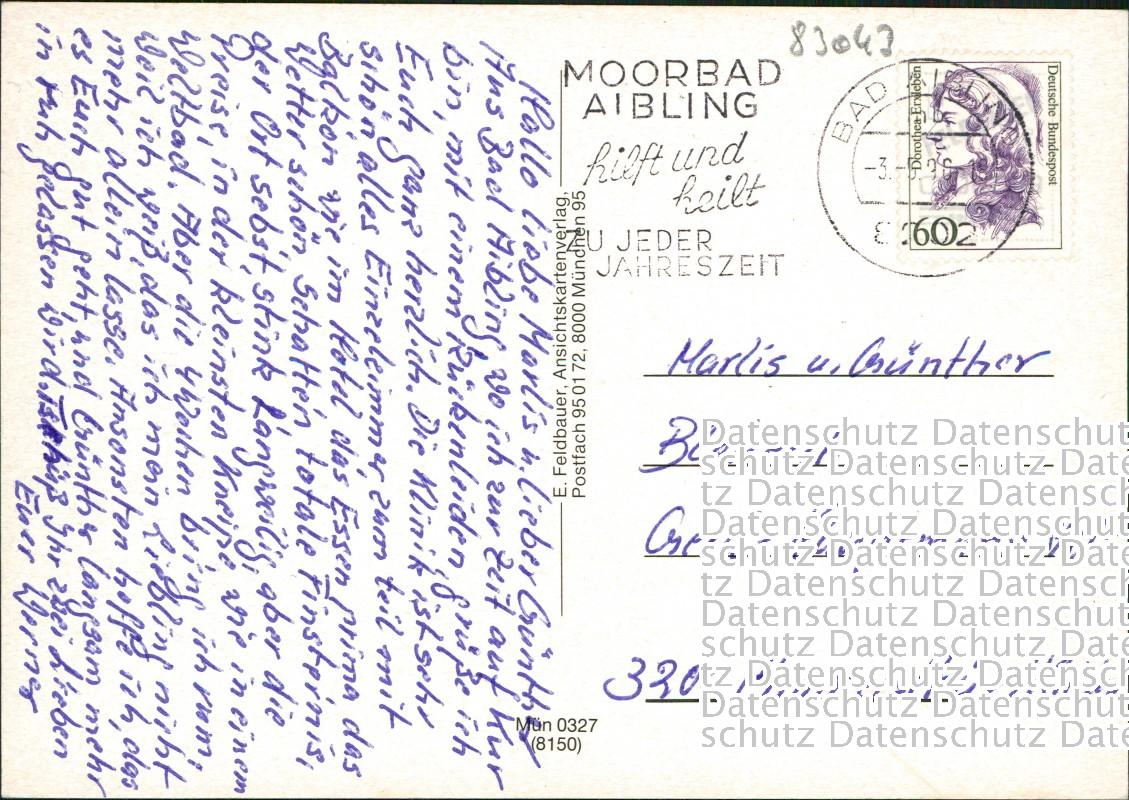 83043
MOORBAD
AIBLING
hilft und
heilt
ZU JEDER
JAHRESZEIT
BAD AIBLING
-3.-5.9
Dorothea Erxleben
Deutsche Bundespost
60
Hallo liebe Marlis u. lieber Günther
Aus Bad Aibling wo ich zur Zeit auf Kur
bin, mit einem Rückenleiden grüße ich
Euch ganz herzlich. Die Klinik ist sehr
schön alles Einzelzimmer zum teil mit
Balkon wie im Hotel das Essen prima das
Wetter schön Schatten totale Finsternis,
der Ort selbst, stink langweilig aber die
Preise in der kleinsten Kneipe wie in einem
Weltbad. Aber die 4 Wochen bring ich rum,
weil ich weiß, das ich mein Liebling nicht
mehr allein lasse. Ansonsten hoffe ich, das
es Euch gut geht und Günther langsam mehr
in ruh gelassen wird. Tschüß Ihr zwei Lieben
Euer Werner
E. Feldbauer, Ansichtskartenverlag,
Postfach 95 01 72, 8000 München 95
Marlis u. Günther
320
Mün 0327
(8150)
Datenschutz Datenschutz
schutz Datenschutz Date
tz Datenschutz Datensch
Datenschutz Datenschut
schutz Datenschutz Date
tz Datenschutz Datensch
Datenschutz Datenschutz
schutz Datenschutz Date
tz Datenschutz Datensch
Datenschutz Datenschut
schutz Datenschutz Date